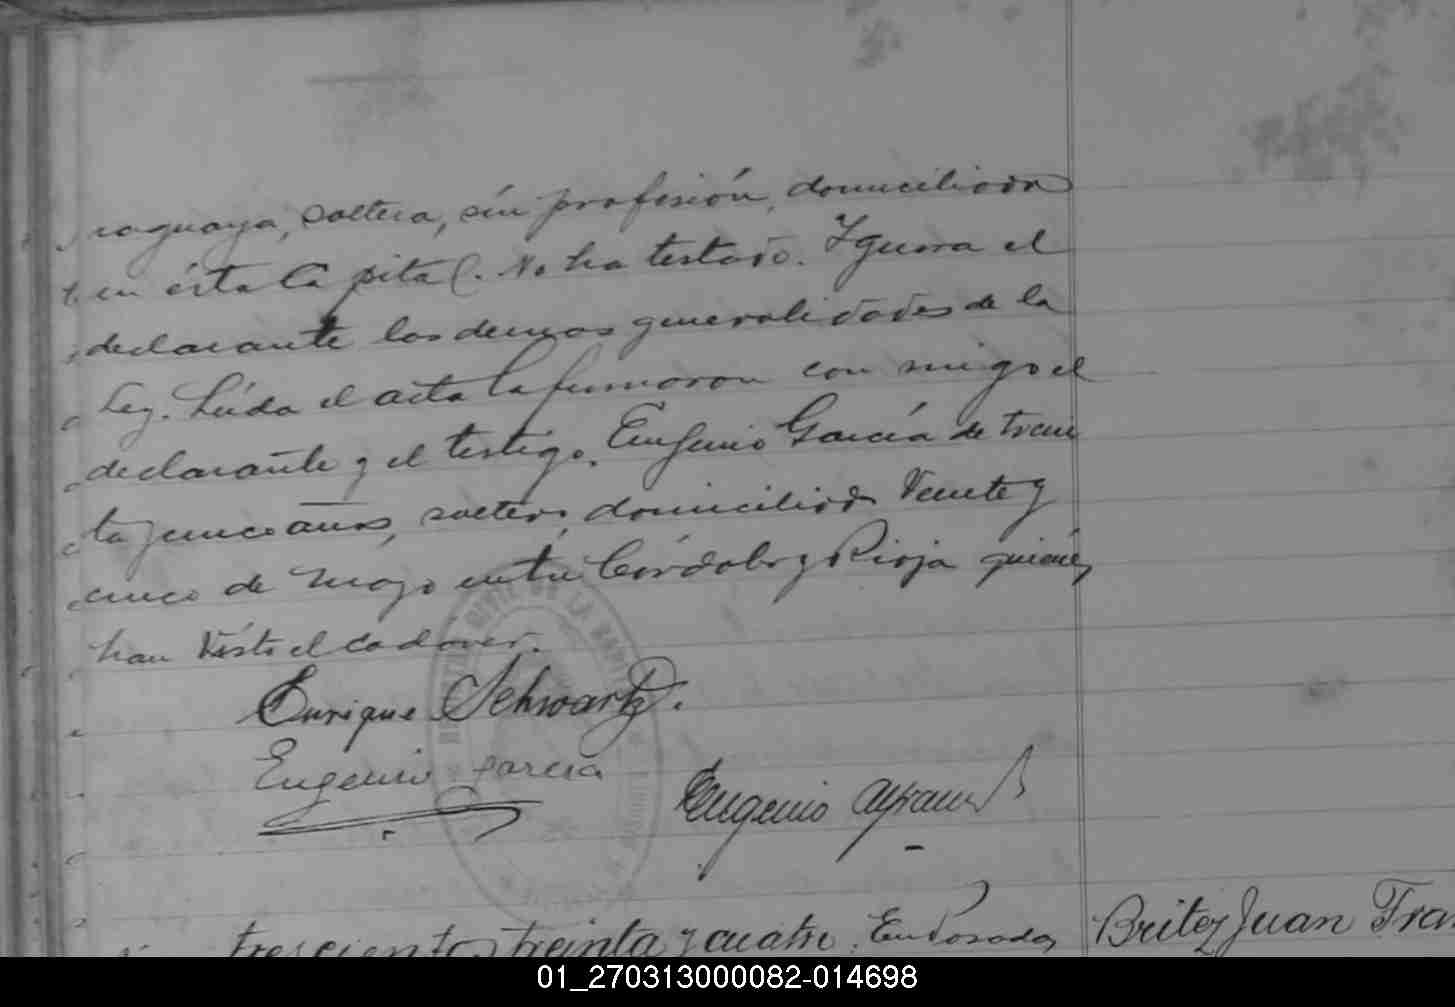 raguaya, soltera, sin profesión, domiciliada
en ésta Capital. No ha testado. Ygnora el
declarante las demas generalidades de la
Ley. Leída el acta la firmaron con migo el
declarante y el testigo, Eugenio García de trein
ta y cinco años, soltero, domiciliado Veinte y
cinco de Mayo entre Córdoba y Rioja quiénes
han visto el cadaver.
Enrique Schwartz.
Eugenio García
Eugenio
trescientos treinta y cuatro. En Posadas
Britez Juan Fra
01_270313000082-014698